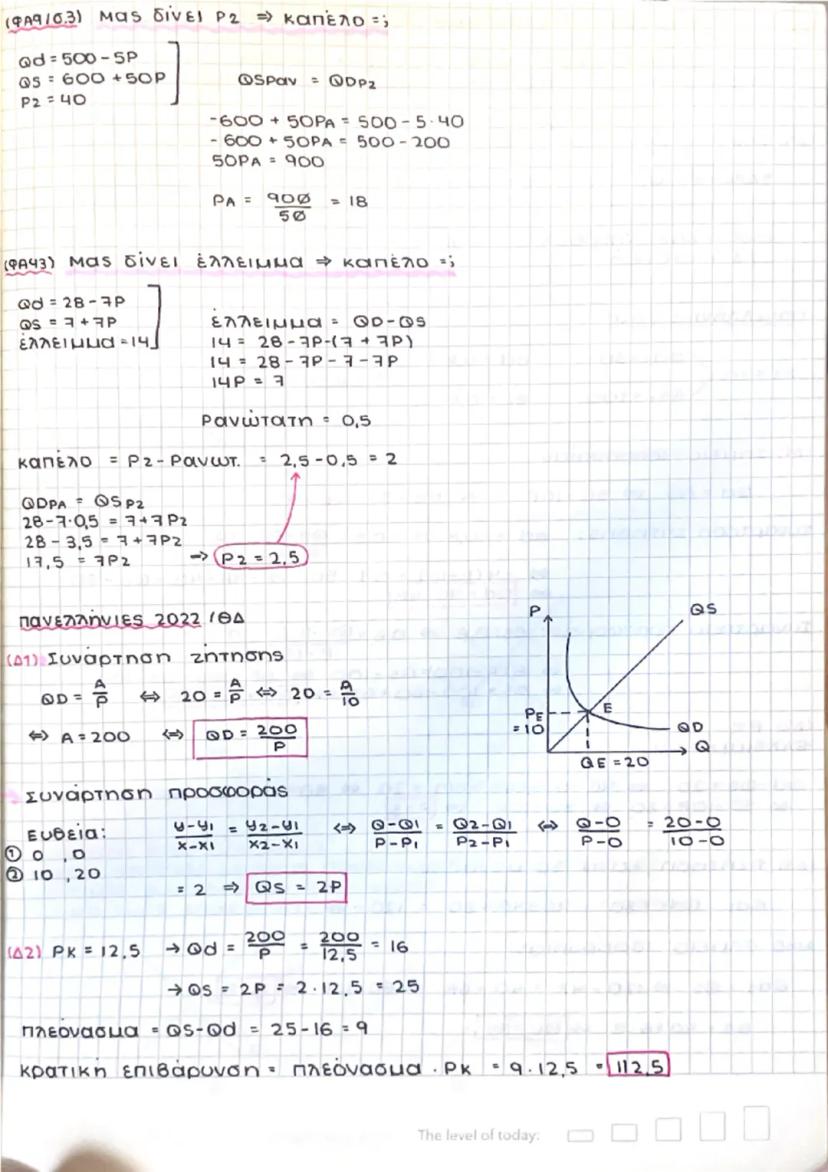 (ΦΑ9/σ.3) Μας δίνει P2 ⇒ καπέλο =;
Qd = 500 - 5P
QS = 600 + 50P
P2 = 40
QSPαν = QDP2
-600 + 50PA = 500 - 5·40
-600 + 50PA = 500 - 200
50PA = 900
PA = 900/50 = 18
(ΦΑ43) Μας δίνει έλλειμμα ⇒ καπέλο =;
Qd = 28 - 7P
QS = 7 + 7P
έλλειμμα = 14
έλλειμμα = QD - QS
14 = 28 - 7P - (7 + 7P)
14 = 28 - 7P - 7 - 7P
14P = 7
Pανώτατη = 0,5
καπέλο = P2 - Pανωτ. = 2,5 - 0,5 = 2
QDPA = QSP2
28 - 7·0,5 = 7 + 7P2
28 - 3,5 = 7 + 7P2
17,5 = 7P2 ⇒ P2 = 2,5
πανελλήνιες 2022 / ΘΔ
(Δ1) Συνάρτηση ζήτησης
QD = A/P ⇔ 20 = A/P ⇔ 20 = A/10
⇔ A = 200 ⇔ QD = 200/P
P
QS
PE = 10
E
QD
Q
QE = 20
Συνάρτηση προσφοράς
Ευθεία: y-y1/x-x1 = y2-y1/x2-x1 ⇔ Q-Q1/P-P1 = Q2-Q1/P2-P1 ⇔ Q-0/P-0 = 20-0/10-0
① 0 , 0
② 10 , 20
= 2 ⇒ QS = 2P
(Δ2) PK = 12,5 → Qd = 200/P = 200/12,5 = 16
→ QS = 2P = 2·12,5 = 25
πλεόνασμα = QS - Qd = 25 - 16 = 9
κρατική επιβάρυνση = πλεόνασμα · PK = 9·12,5 = 112,5
The level of today: